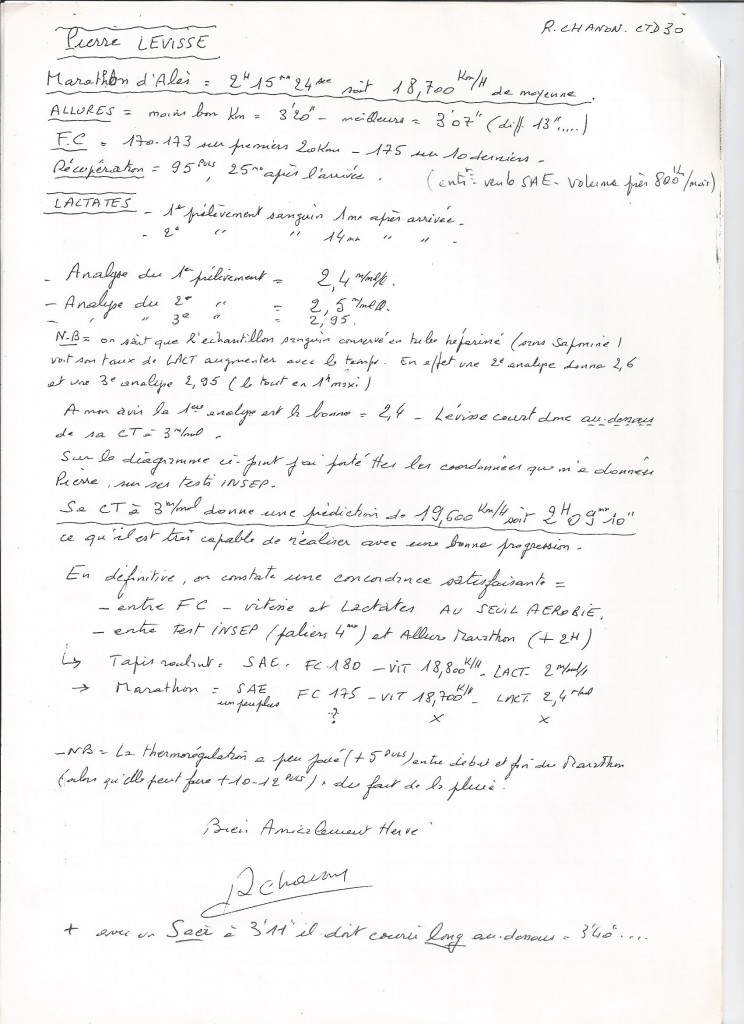 R. CHANON. CTD 30
Pierre LEVISSE
Marathon d'Alès = 2H 15mn 24sec soit 18,700 Km/H de moyenne.
ALLURES = moins bon Km = 3'20" - meilleurs = 3'07" (diff. 13".....)
F.C = 170-173 sur premiers 20Km - 175 sur 10 derniers -
Récupération = 95 puls, 25mn après l'arrivée.
(entr. SAE - Volume près 800Km/mois)
LACTATES - 1er prélèvement sanguin 1mn après arrivée.
- 2e " " 14mn " " -
- Analyse du 1er prélèvement = 2,4
- Analyse du 2e " = 2,5
- " " 3e " = 2,95.
N.B = on sait que l'échantillon sanguin conservé en tube hépariné (sans Saponine)
voit son taux de LACT augmenter avec le temps. En effet une 2e analyse donne 2,6
et une 3e analyse 2,95 (le tout en 1H maxi)
A mon avis la 1ere analyse est la bonne = 2,4 - Lévisse court donc au-dessous
de sa CT à 3 m/mol.
Sur le diagramme ci-joint j'ai porté ttes les coordonnées que m'a données
Pierre, sur ses tests INSEP.
Sa CT à 3 m/mol donne une prédiction de 19,600 Km/H soit 2H 09mn 10"
ce qu'il est très capable de réaliser avec une bonne progression.
En définitive, on constate une concordance satisfaisante =
- entre FC - vitesse et Lactates AU SEUIL AEROBIE,
- entre Test INSEP (paliers 4mn) et Allure Marathon (+ 2H)
↳ Tapis roulant = SAE - FC 180 - VIT 18,800 K/H - LACT. 2 m/mol/l
→ Marathon = SAE un peu plus FC 175 - VIT 18,700 K/H - LACT. 2,4 m/mol
? x x
- NB = La thermorégulation a peu joué (+ 5 puls) entre début et fin du Marathon
(alors qu'elle peut faire +10-12 puls), du fait de la pluie.
Bien Amicalement Hervé
R Chanon
+ avec un Saér à 3'11" il doit courir long au-dessous = 3'40"....